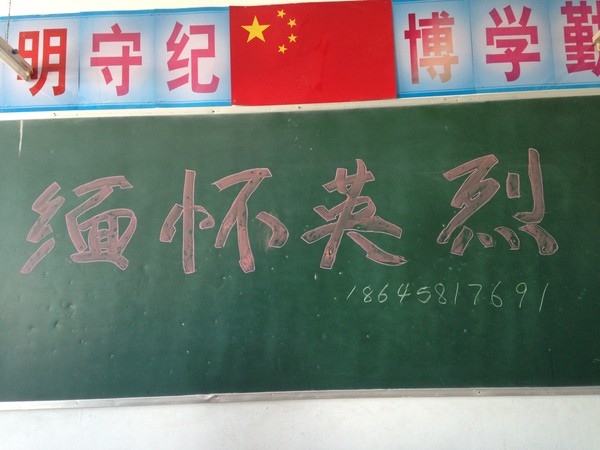 明守纪 博学勤
缅怀英烈
18645817691